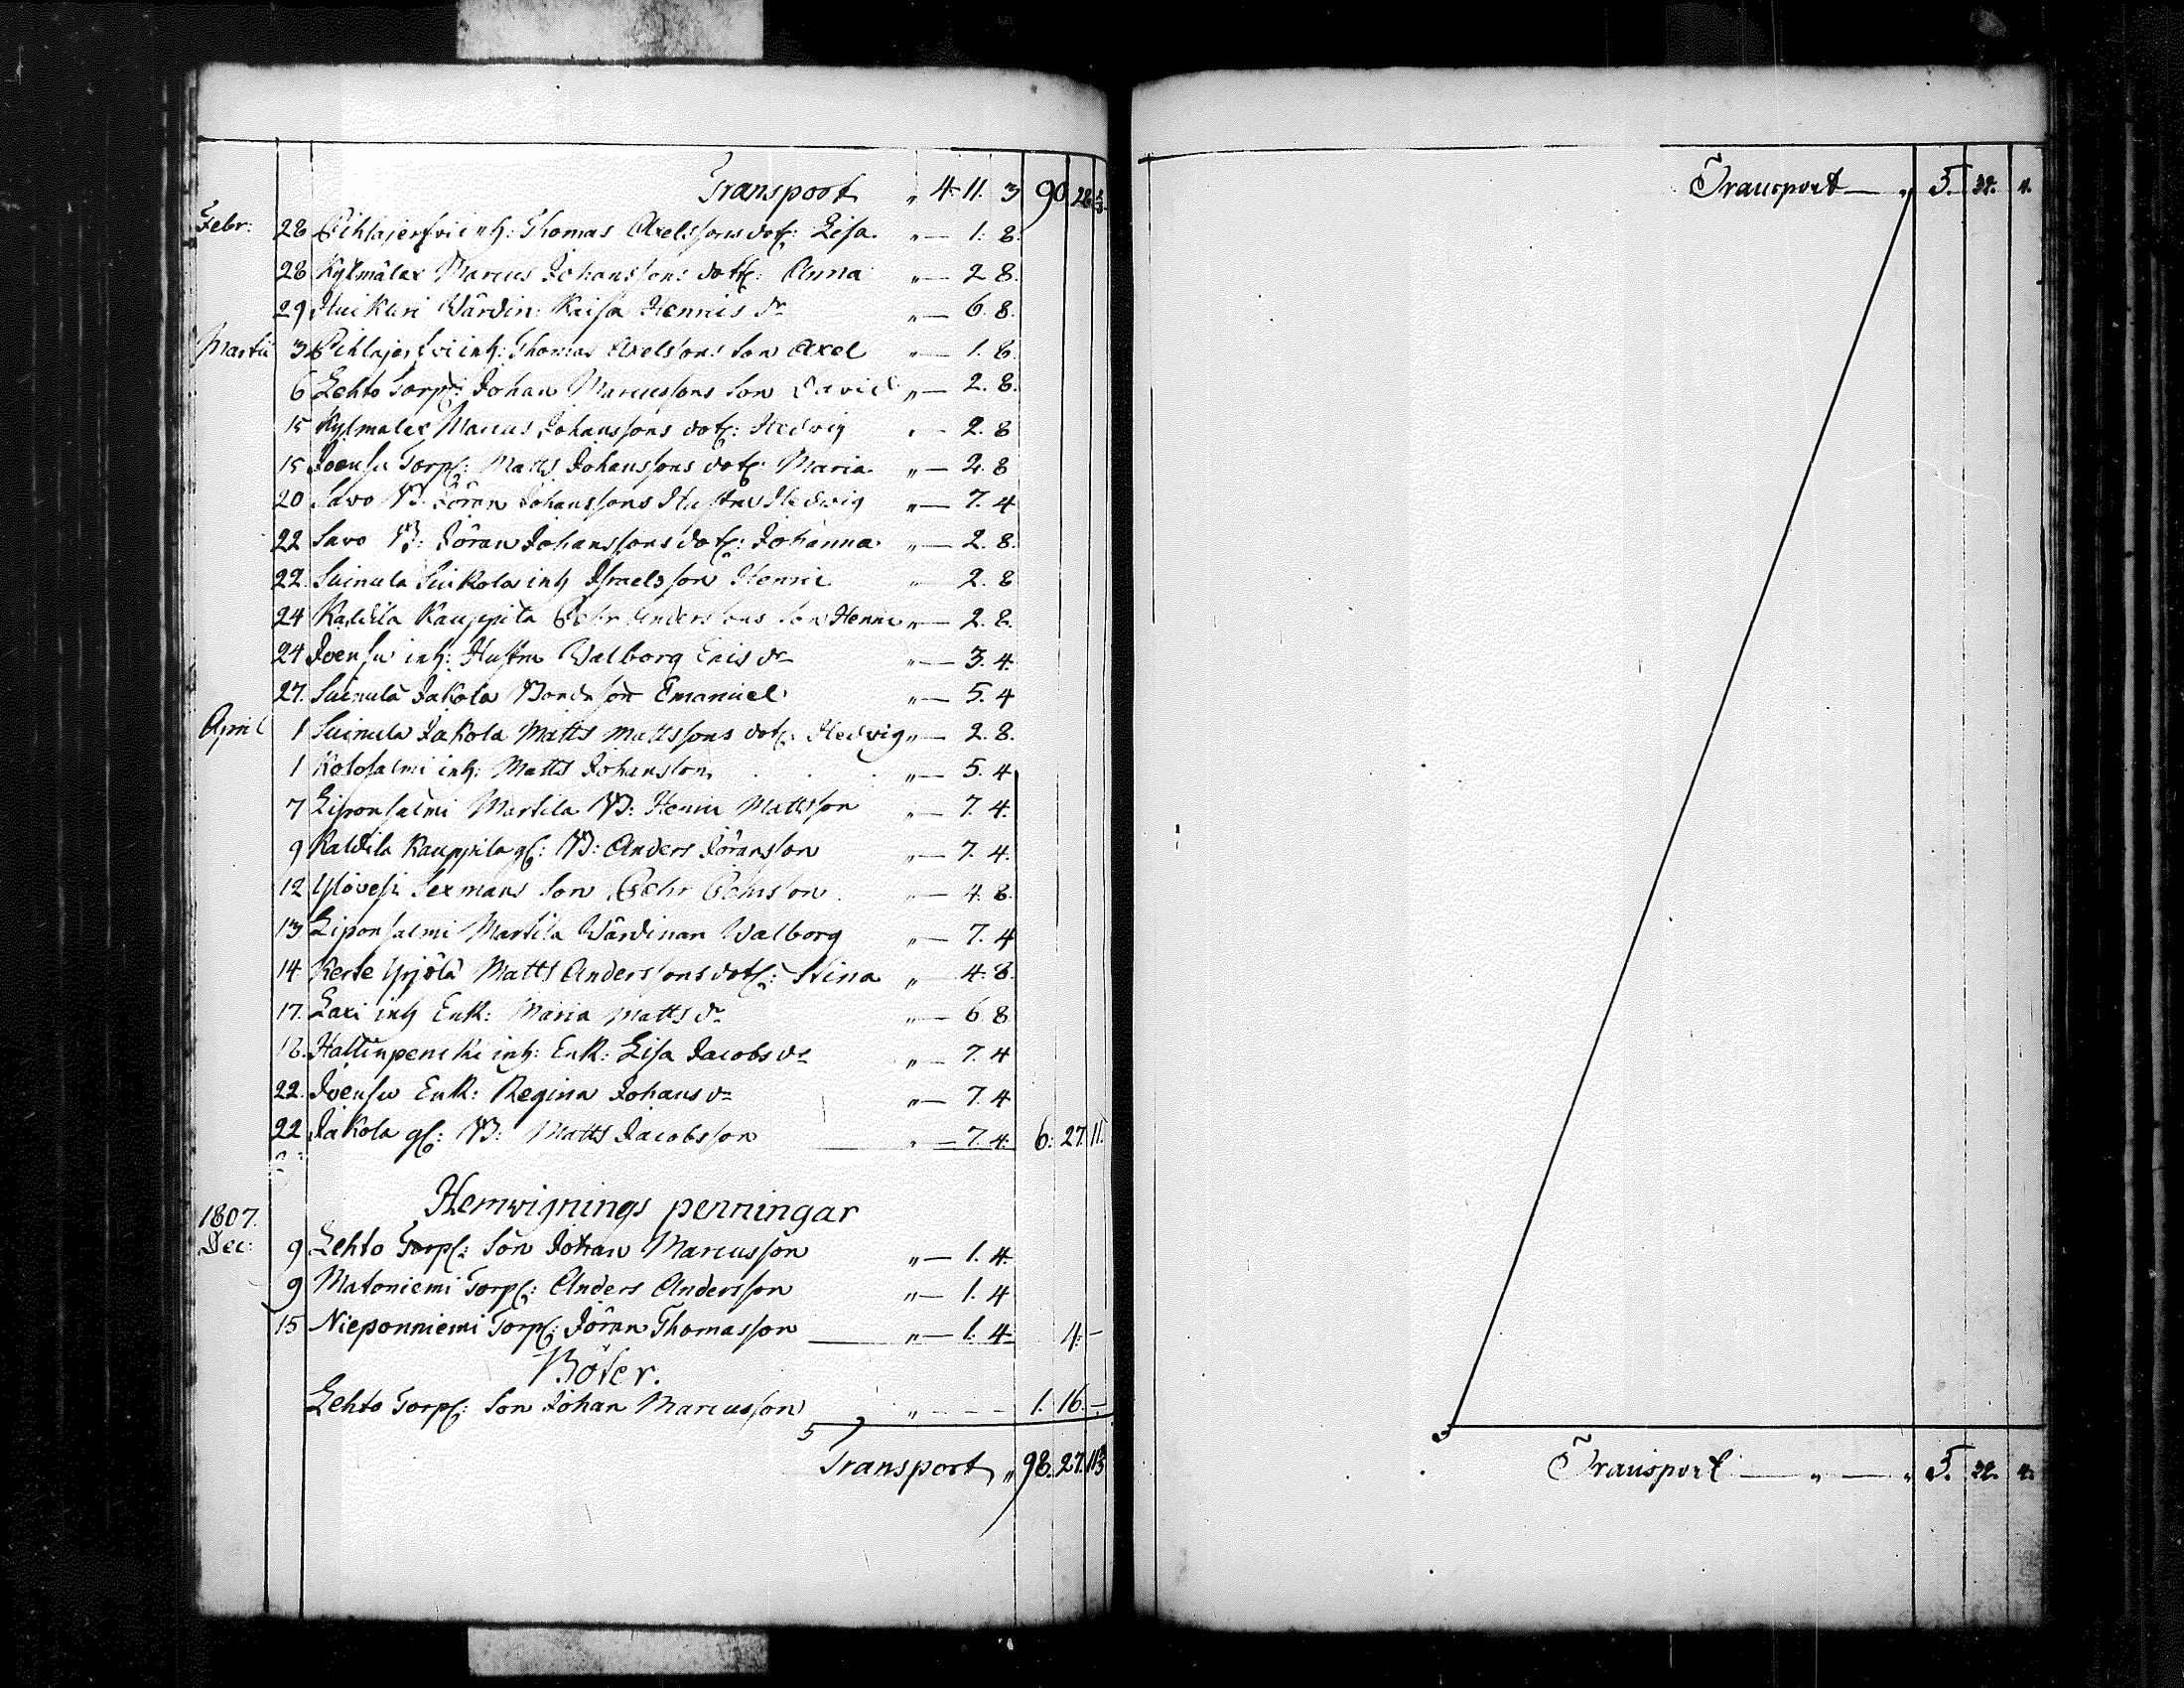 Transport „ 4. 11. 3 90. 28.
Febr: 28 Pihlajerfvi inh: Thomas Axelssons dotf: Lisa „ — 1. 8.
28 Kylmälax Marcus Johanssons dotf: Anna „ — 2 8.
29 Huikuri Wärdin: Kaisa Henriks dr „ — 6. 8.
Martii 3 Pihlajerfvi inh: Thomas Axelssons Son Axel „ — 1. 8.
6 Lehto Torpf: Johan Marcussons Son David „ — 2. 8.
15 Kylmalax Marcus Johanssons dotf: Hedwig „ — 2. 8
15 Joensu Torpf: Matts Johanssons dotf: Maria „ — 2. 8
20 Savo B: Jöran Johanssons Hustru Hedwig „ — 7. 4
22 Savo B: Jöran Johanssons dotf: Johanna „ — 2. 8.
22. Suinula inh Israelsson Henric 2. 8
24 Kaldila Kauppila Pehr Anderssons Son Henric „ — 2. 8.
24 Joensu inh: Hustru Walborg Erics dr „ — 3. 4.
27. Suinula Jakola Bonde son Emanuel „ — 5. 4
April 1 Suinula Jakola Matts Mattssons dotf: Hedwig „ — 2. 8.
1 Kotosalmi inh: Matts Johansson „ — 5. 4
7 Liponsalmi Martila B: Henric Mattsson „ — 7. 4.
9 Kaldila Kauppila gf: B: Anders Jöransson „ — 7. 4.
12 Ylövesi Sexmans Son Pehr Pehrsson „ — 4. 8.
13 Liponsalmi Martila Wärdinan Walborg „ — 7. 4
14 Kerte Yrjölä Matts Anderssons dotf: Stina „ 4. 8.
17. Laxi inh Enk: Maria Matts dr „ — 6 8
18. inh: Enk: Lisa Jacobs dr „ — 7. 4
22. Joensu Enk: Regina Johans dr „ — 7. 4
22 Jakola gf: B: Matts Jacobsson „ — 7. 4. 6. 27. 11.
Hemwignings penningar
1807.
Dec: 9 Lehto Torpf: Son Johan Marcusson „ — 1. 4.
9 Matoniemi Torpf: Anders Andersson „ — 1. 4
15 Nieponniemi Torpf: Jöran Thomasson „ — 1. 4 4. —
Böter.
Lehto Torpf: Son Johan Marcusson „ - - - 1. 16. —
Transport „ 98. 27.
Transport — „ 5. 32. 4.
Transport — „ — „ 5. 32. 4.